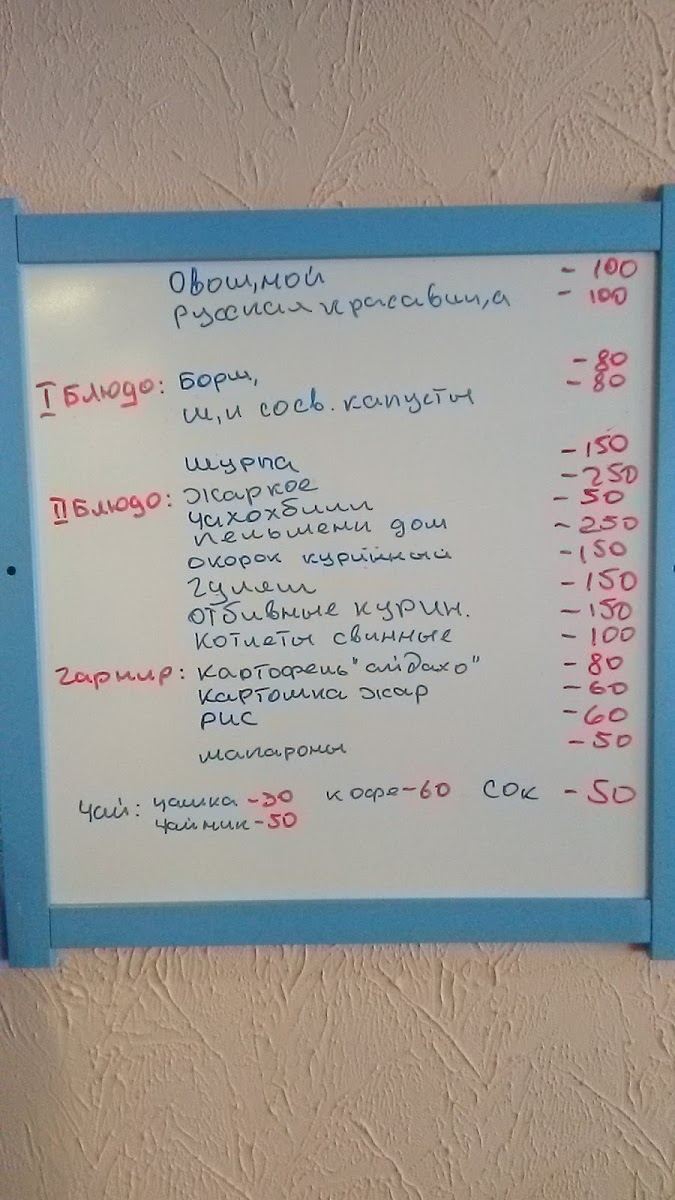 Овощной - 100
Русская красавица - 100
I Блюдо: Борщ - 80
щи со св. капусты - 80
шурпа - 150
II Блюдо: жаркое - 250
чахохбили - 50
пельмени дом - 250
окорок курийный - 150
гуляш - 150
отбивные курин. - 150
котлеты свинные - 100
гарнир: картофель "айдахо" - 80
картошка жар - 60
рис - 60
макароны - 50
Чай: чашка - 30 кофе - 60 сок - 50
чайник - 50